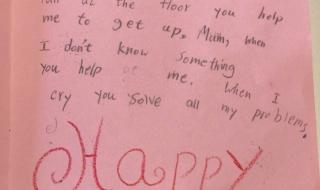 fall at the floor you help
me to get up. Mum, when
I don't know something
you help me. When I
cry you solve all my problems.
Happy